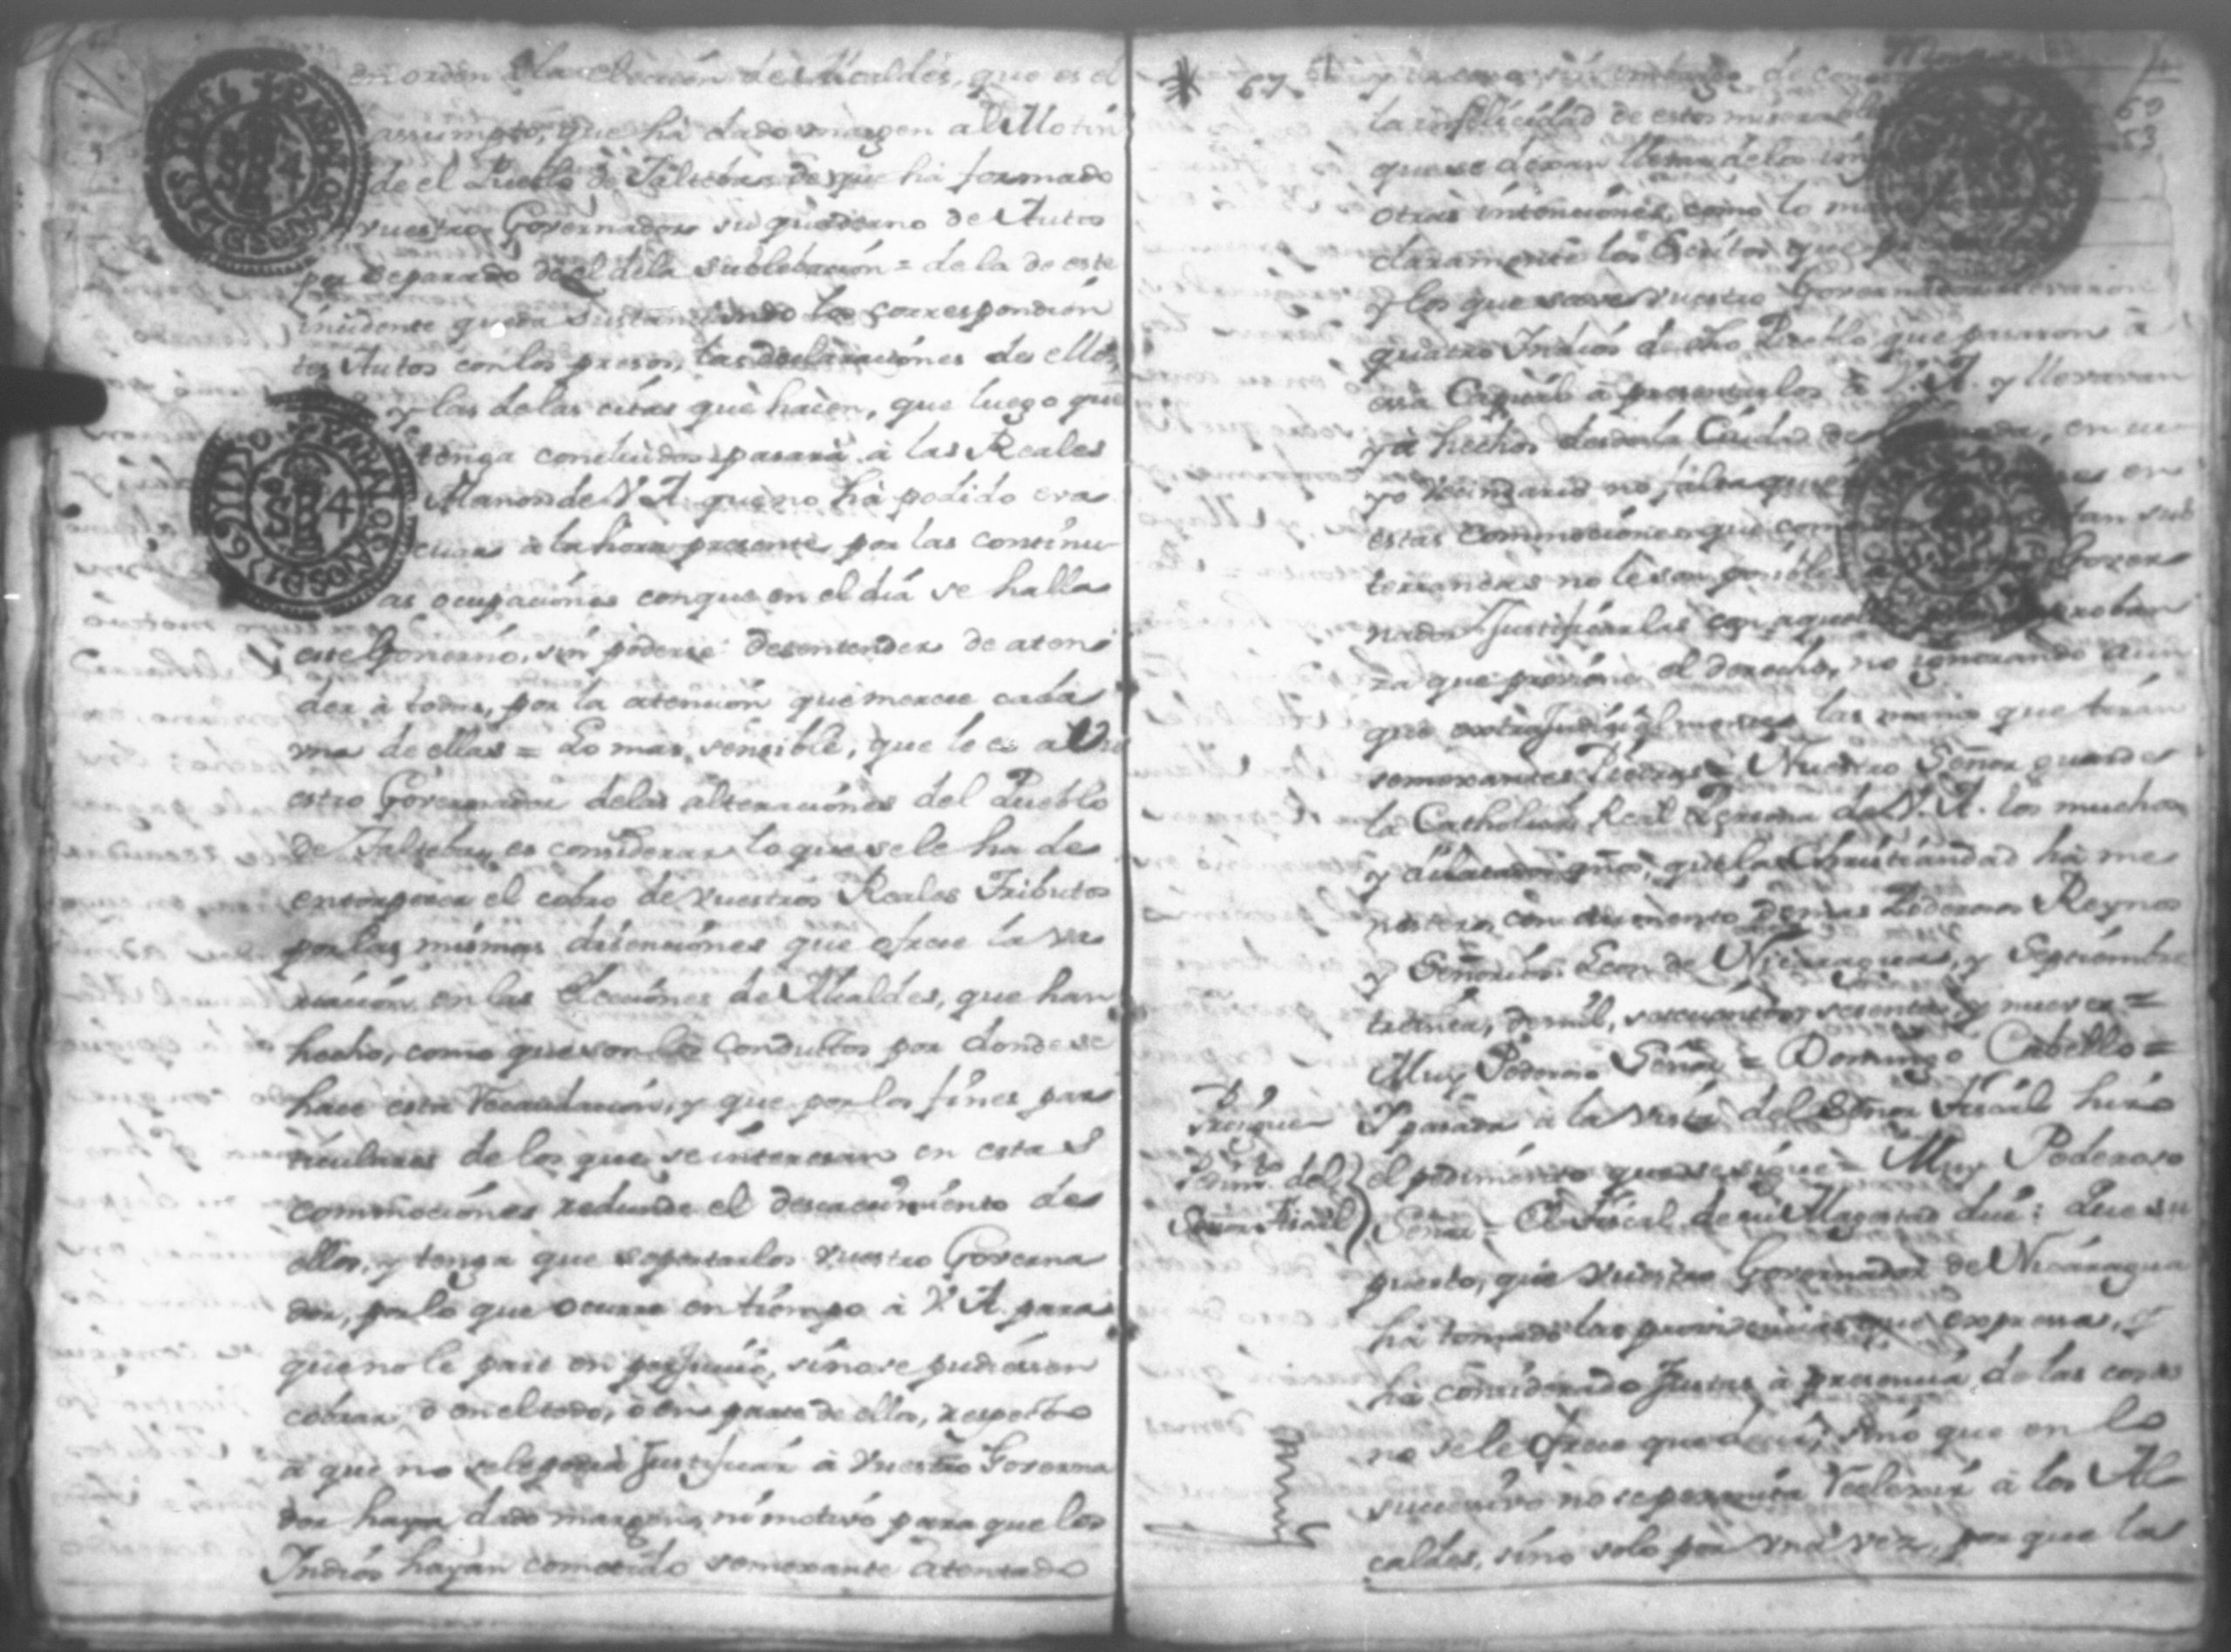 en orden â la eleccion de Alcaldes, que es el
assumpto, que há dado margen al Motin
de el Pueblo de Jalteba de que há formado
vuestro Governador su quaderno de Autos
por separado de el de la sublebacion = de la de este
incidente queda sustanciando los correspondien
tes Autos con los presos, las declaraciones de ellos,
y las de las citas que hacen, que luego que
tenga concluidos pasará â las Reales
Manos de V.A. que no há podido eva
cuar â la hora presente por las continu
as ocupaciones con que en el dia se halla
este Govierno, sin poderse desentender de aten
der â todas, por la atencion que merece cada
una de ellas = Lo mas sensible, que le es a Vu
estro Governador de las alteraciones del Pueblo
de Jalteba, es considerar lo que se le ha de
entorpecer el cobro de vuestros Reales Tributos
por las mismas disenciones que ofrece la va
riacion en las Elecciones de Alcaldes, que han
hecho, como que son los conductos por donde se
hace esta recaudacion, y que por los fines par
ticulares de los que se interesan en estas
commociones redunde el descaecimiento de
ellos, y tenga que soportarlos vuestro Governa
dor, por lo que ocurre en tiempo â V.A. para
que no le pare en perjuicio, si no se pudiessen
cobrar, ô en el todo, ô en parte de ellos, respecto
â que no se le podrá justificar â vuestro Governa
dor haya dado margen, ni motivo para que los
Indios hayan cometido semexante atentado
67
la infelicidad de estos miserables
que se dexan llevar de las
otras intenciones, como lo
claramente los Escritos que
y los que vuestro Governador
quatro Indios de dho Pueblo que pasaron â
esa Capital â presentarlos â V.A. y llevavan
ya hechos desde la Ciudad de, en cu
yo vecindario no falta quien en
estas commociones que como tan sub
terraneas no le son posibles Gover
nador justificarlas con aquella proban
za que previene el derecho, no ignorando aun
que extrajudicialmente las manos que tiran
semexantes Piedras = Nuestro Señor guarde
la Catholica Real Persona de V.A. los muchos
y dilatados años, que la Christiandad há me
nester, con aumento de mas Poderosos Reynos
y Señorios. Leon de Nicaragua, y Septiembre
treinta, de mil, setecientos, sesenta, y nueve =
Muy Poderoso Señor = Domingo Cabello =
Y pasada â la vista del Señor Fiscál hizo
Pedimto. del
Señor Fiscál
el pedimento que se sigue = Muy Poderoso
Señor = El Fiscal de su Magestad dice: Que su
puesto, que vuestro Governador de Nicaragua
há tomado las providencias que expresa, y
há considerado justas â presencia de las cosas
no se le ofrece que decir, sino que en lo
succesivo no se permita reelexir â los Al
caldes, sino solo por una vez, por que las